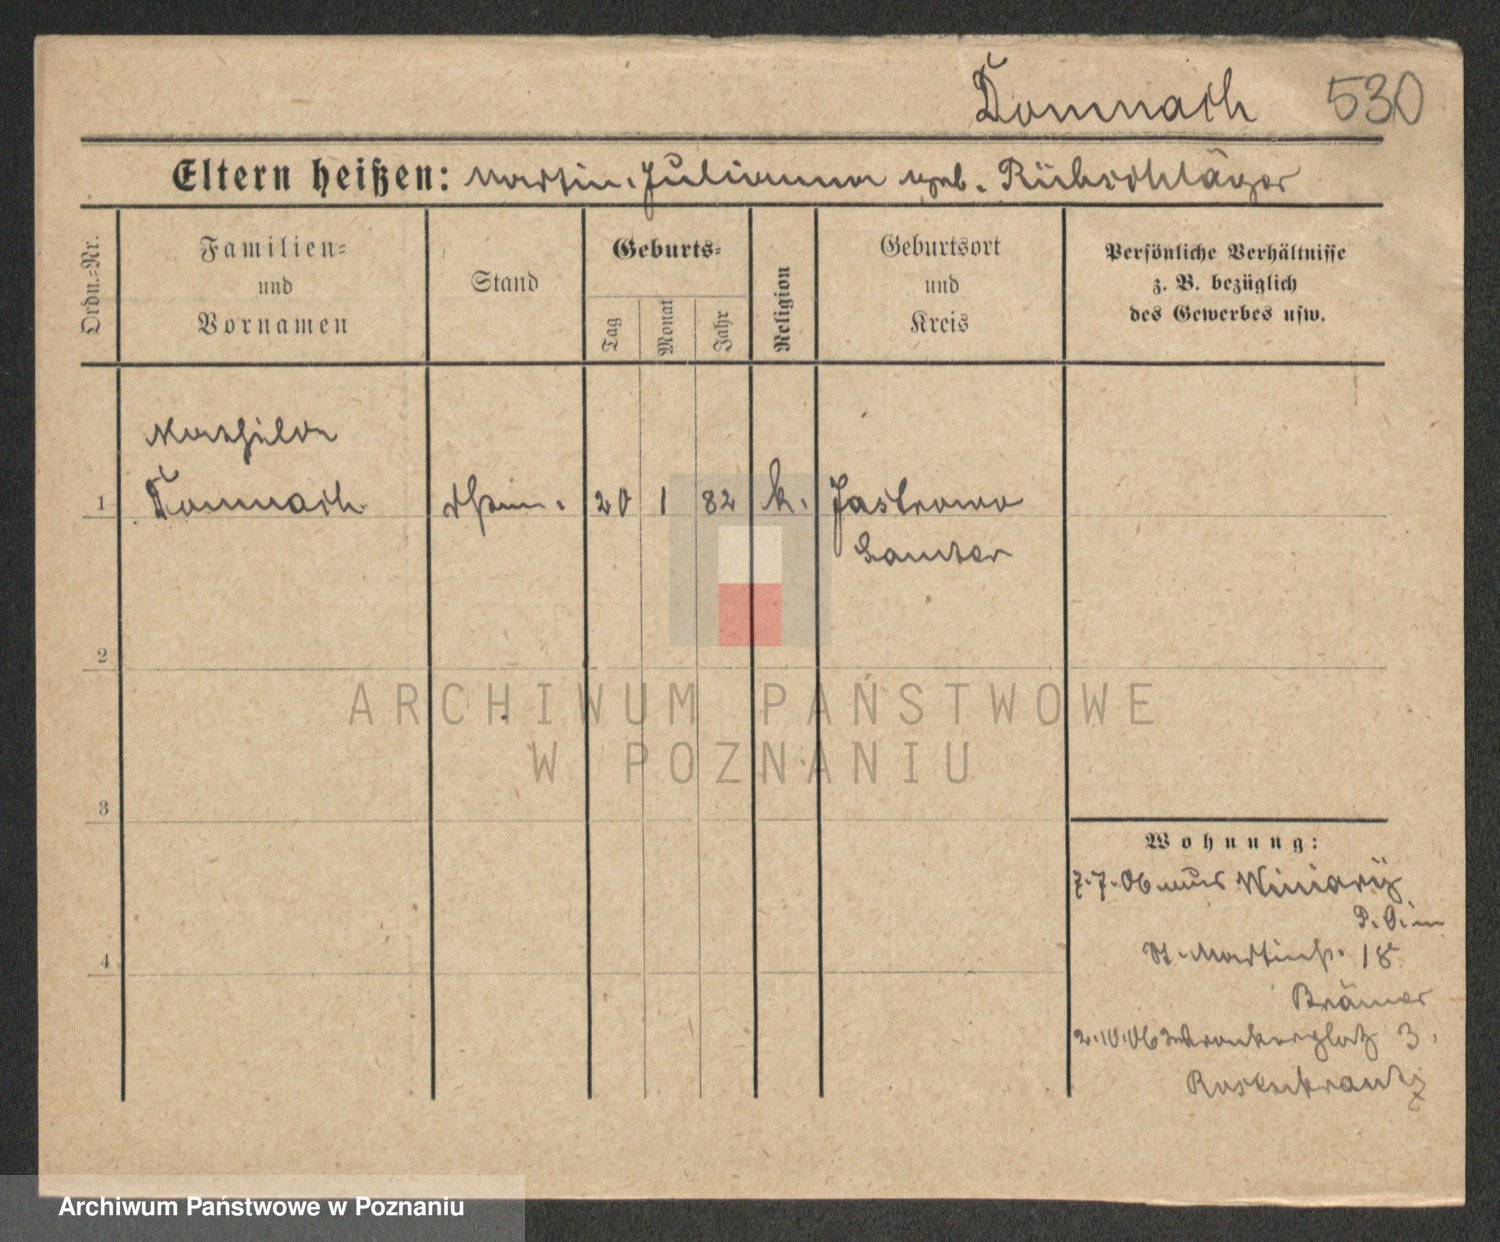 Domnach 530
Eltern heißen: Martin. Julianna geb. Rübschläger
Ordn.=Nr.
Familien=
und
Vornamen
Stand
Geburts=
Tag
Monat
Jahr
Religion
Geburtsort
und
Kreis
Persönliche Verhältnisse
z. B. bezüglich
des Gewerbes usw.
Mathilde
1 Domnach 20 1 82 k. Jastrowo
Samter
2
ARCHIWUM PAŃSTWOWE
W POZNANIU
3
Wohnung:
7.7.06 aus Winiary
St. Martinstr. 18
4
Brämer
2.10.06 Wronkerplatz 3.
Rosenkrantz
Archiwum Państwowe w Poznaniu